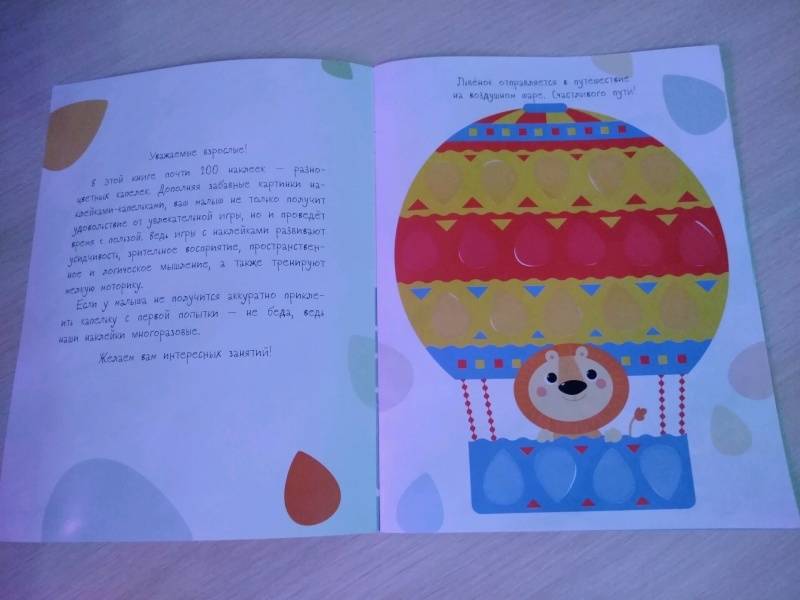 Уважаемые взрослые!
В этой книге почти 200 наклеек — разно-
цветных капелек. Дополняя забавные картинки на-
клейками-капельками, ваш малыш не только получит
удовольствие от увлекательной игры, но и проведёт
время с пользой. Ведь игры с наклейками развивают
усидчивость, зрительное восприятие, пространствен-
ное и логическое мышление, а также тренируют
мелкую моторику.
Если у малыша не получится аккуратно прикле-
ить капельку с первой попытки — не беда, ведь
наши наклейки многоразовые.
Желаем вам интересных занятий!
Львёнок отправляется в путешествие
на воздушном шаре. Счастливого пути!